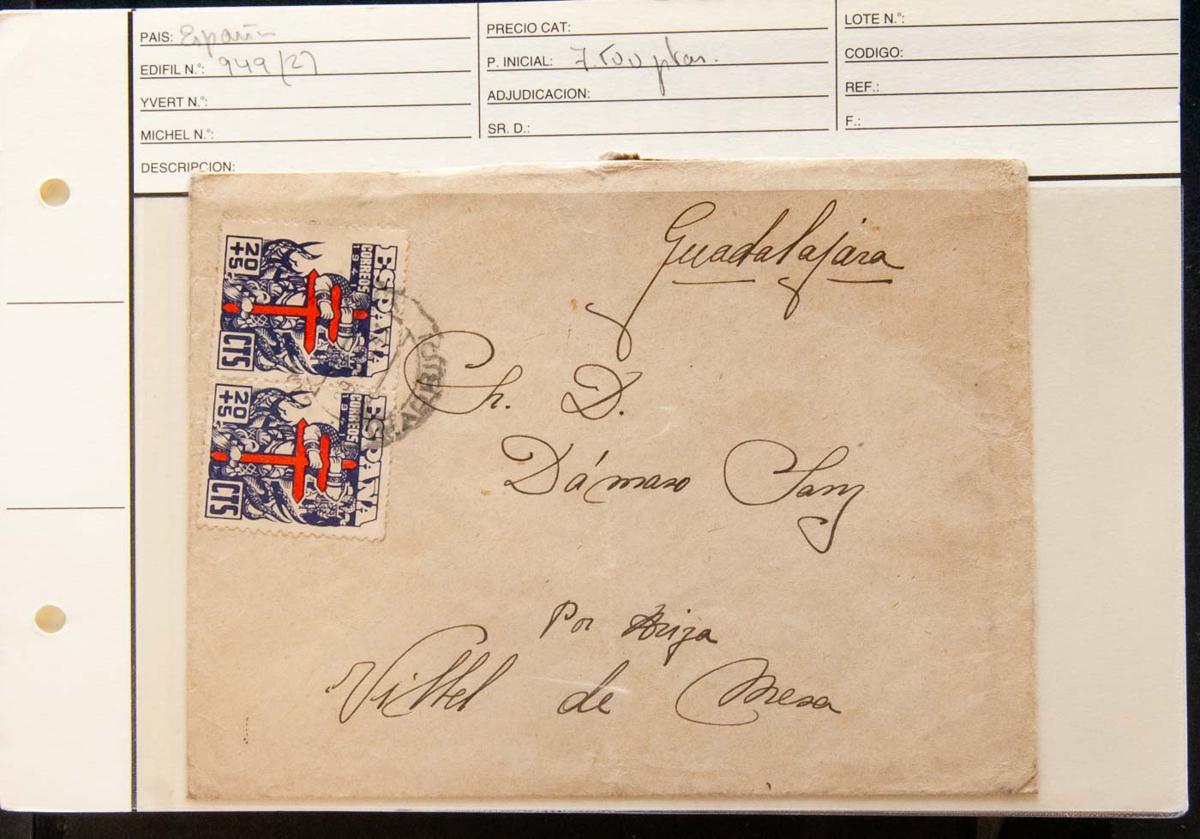 PAIS: España
EDIFIL N.º: 949 (2)
YVERT N.º:
MICHEL N.º:
DESCRIPCION:
PRECIO CAT:
P. INICIAL: 7.500 ptas.
ADJUDICACION:
SR. D.:
LOTE N.º:
CODIGO:
REF.:
F.:
20+5
CTS
ESPAÑA
CORREOS
1941
20+5
CTS
ESPAÑA
CORREOS
1941
Guadalajara
Ch. D.
Dámaso Sanz
Por Ariza
Villel de Mesa